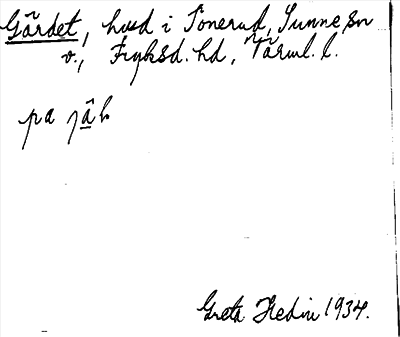 Gärdet, hvsd i Tonerud, Sunne sn
v., Fryksd. hd, Värml. l.
pa jâ̱l
Greta Hedin 1934.